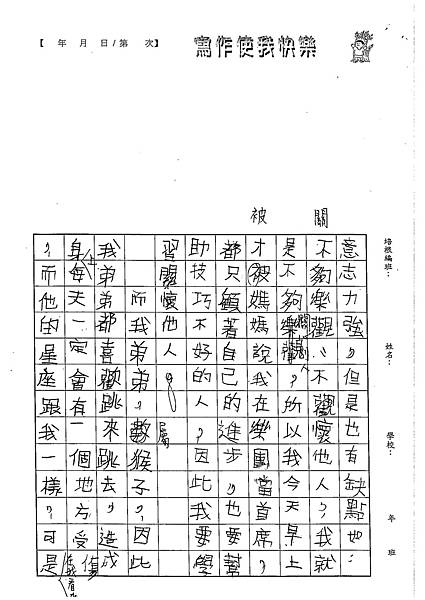 【　年　月　日/第　次】
寫作使我快樂
培根編班：　姓名：　學校：　年　班
關
被
意志力強，但是也有缺點：
不夠樂觀、不觀懷他人，我就
是不夠樂觀，所以我今天早上
才被媽媽說我在樂團當首席，
都只顧著自己的進步，也要幫
助技巧不好的人，因此我要學
習關懷他人。
而我弟弟屬猴子，因此
我弟弟都喜歡跳來跳去，造成
身上每天一定會有一個地方受傷
，而他的星座跟我一樣，可是